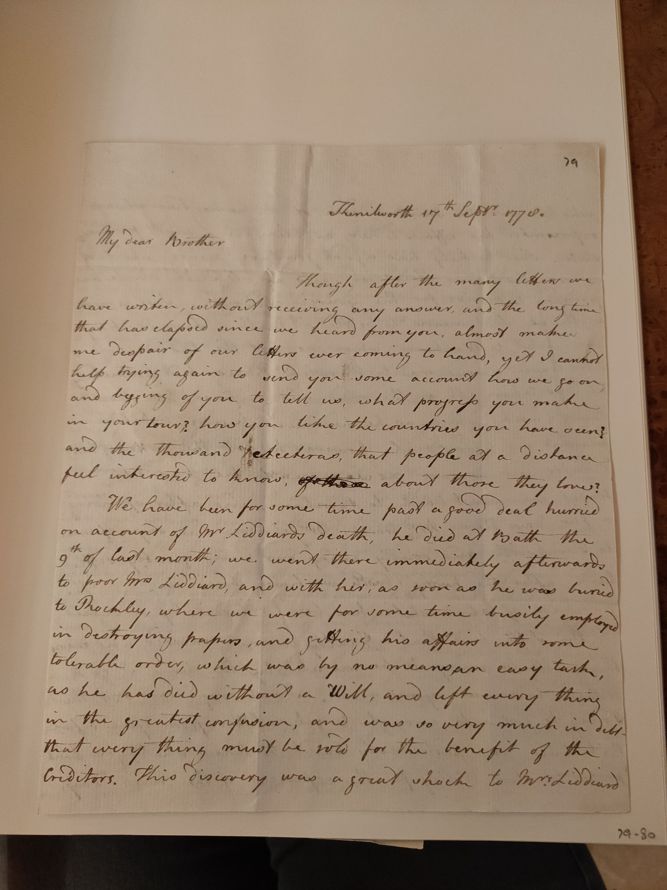 79
Kenilworth 17th Septr. 1778.
My dear Brother
Though after the many letters we
have writen, without receiving any answer, and the long time
that has elapsed since we heard from you, almost makes
me despair of our letters ever coming to hand, yet I cannot
help trying again to send you some account how we go on,
and begging of you to tell us, what progress you make
in your tour? how you like the countries you have seen?
and the thousand etceteras, that people at a distance
feel interested to know, about those they love?
We have been for some time past a good deal hurried
on account of Mr Liddiards death, he died at Bath the
9th of last month; we went there immediately afterwards
to poor Mrs Liddiard, and with her, as soon as he was buried
to Rockley, where we were for some time busily employed
in destroying papers, and getting his affairs into some
tolerable order, which was by no means an easy task,
as he had died without a Will, and left every thing
in the greatest confusion, and was so very much in debt
that every thing must be sold for the benefit of the
Creditors. This discovery was a great shock to Mrs. Liddiard
79-80